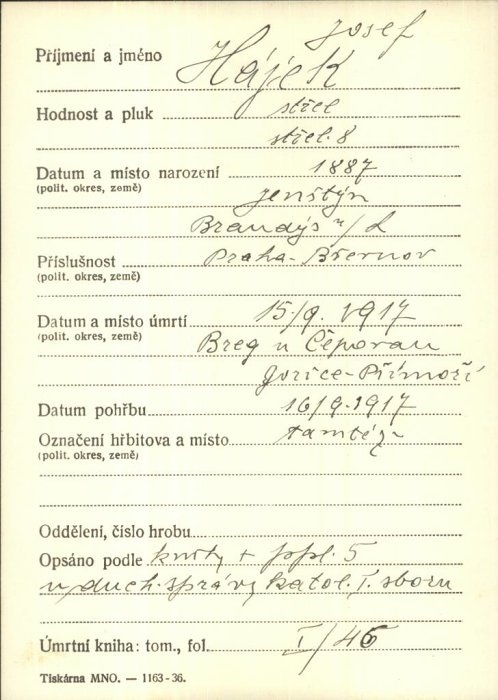 Josef
Příjmení a jméno Hájek
Hodnost a pluk střel
střel. 8
Datum a místo narození 1887
(polit. okres, země) Jenštýn
Brandýs n/L
Příslušnost Praha-Břevnov
(polit. okres, země)
Datum a místo úmrtí 15/9. 1917
(polit. okres, země) Breg u Čepovan
Gorice-Přímoří
Datum pohřbu 16/9.1917
Označení hřbitova a místo tamtéž
(polit. okres, země)
Oddělení, číslo hrobu
Opsáno podle knihy + ppl. 5
u duch. správy katol. I. sboru
Úmrtní kniha: tom., fol. I/46
Tiskárna MNO. — 1163-36.